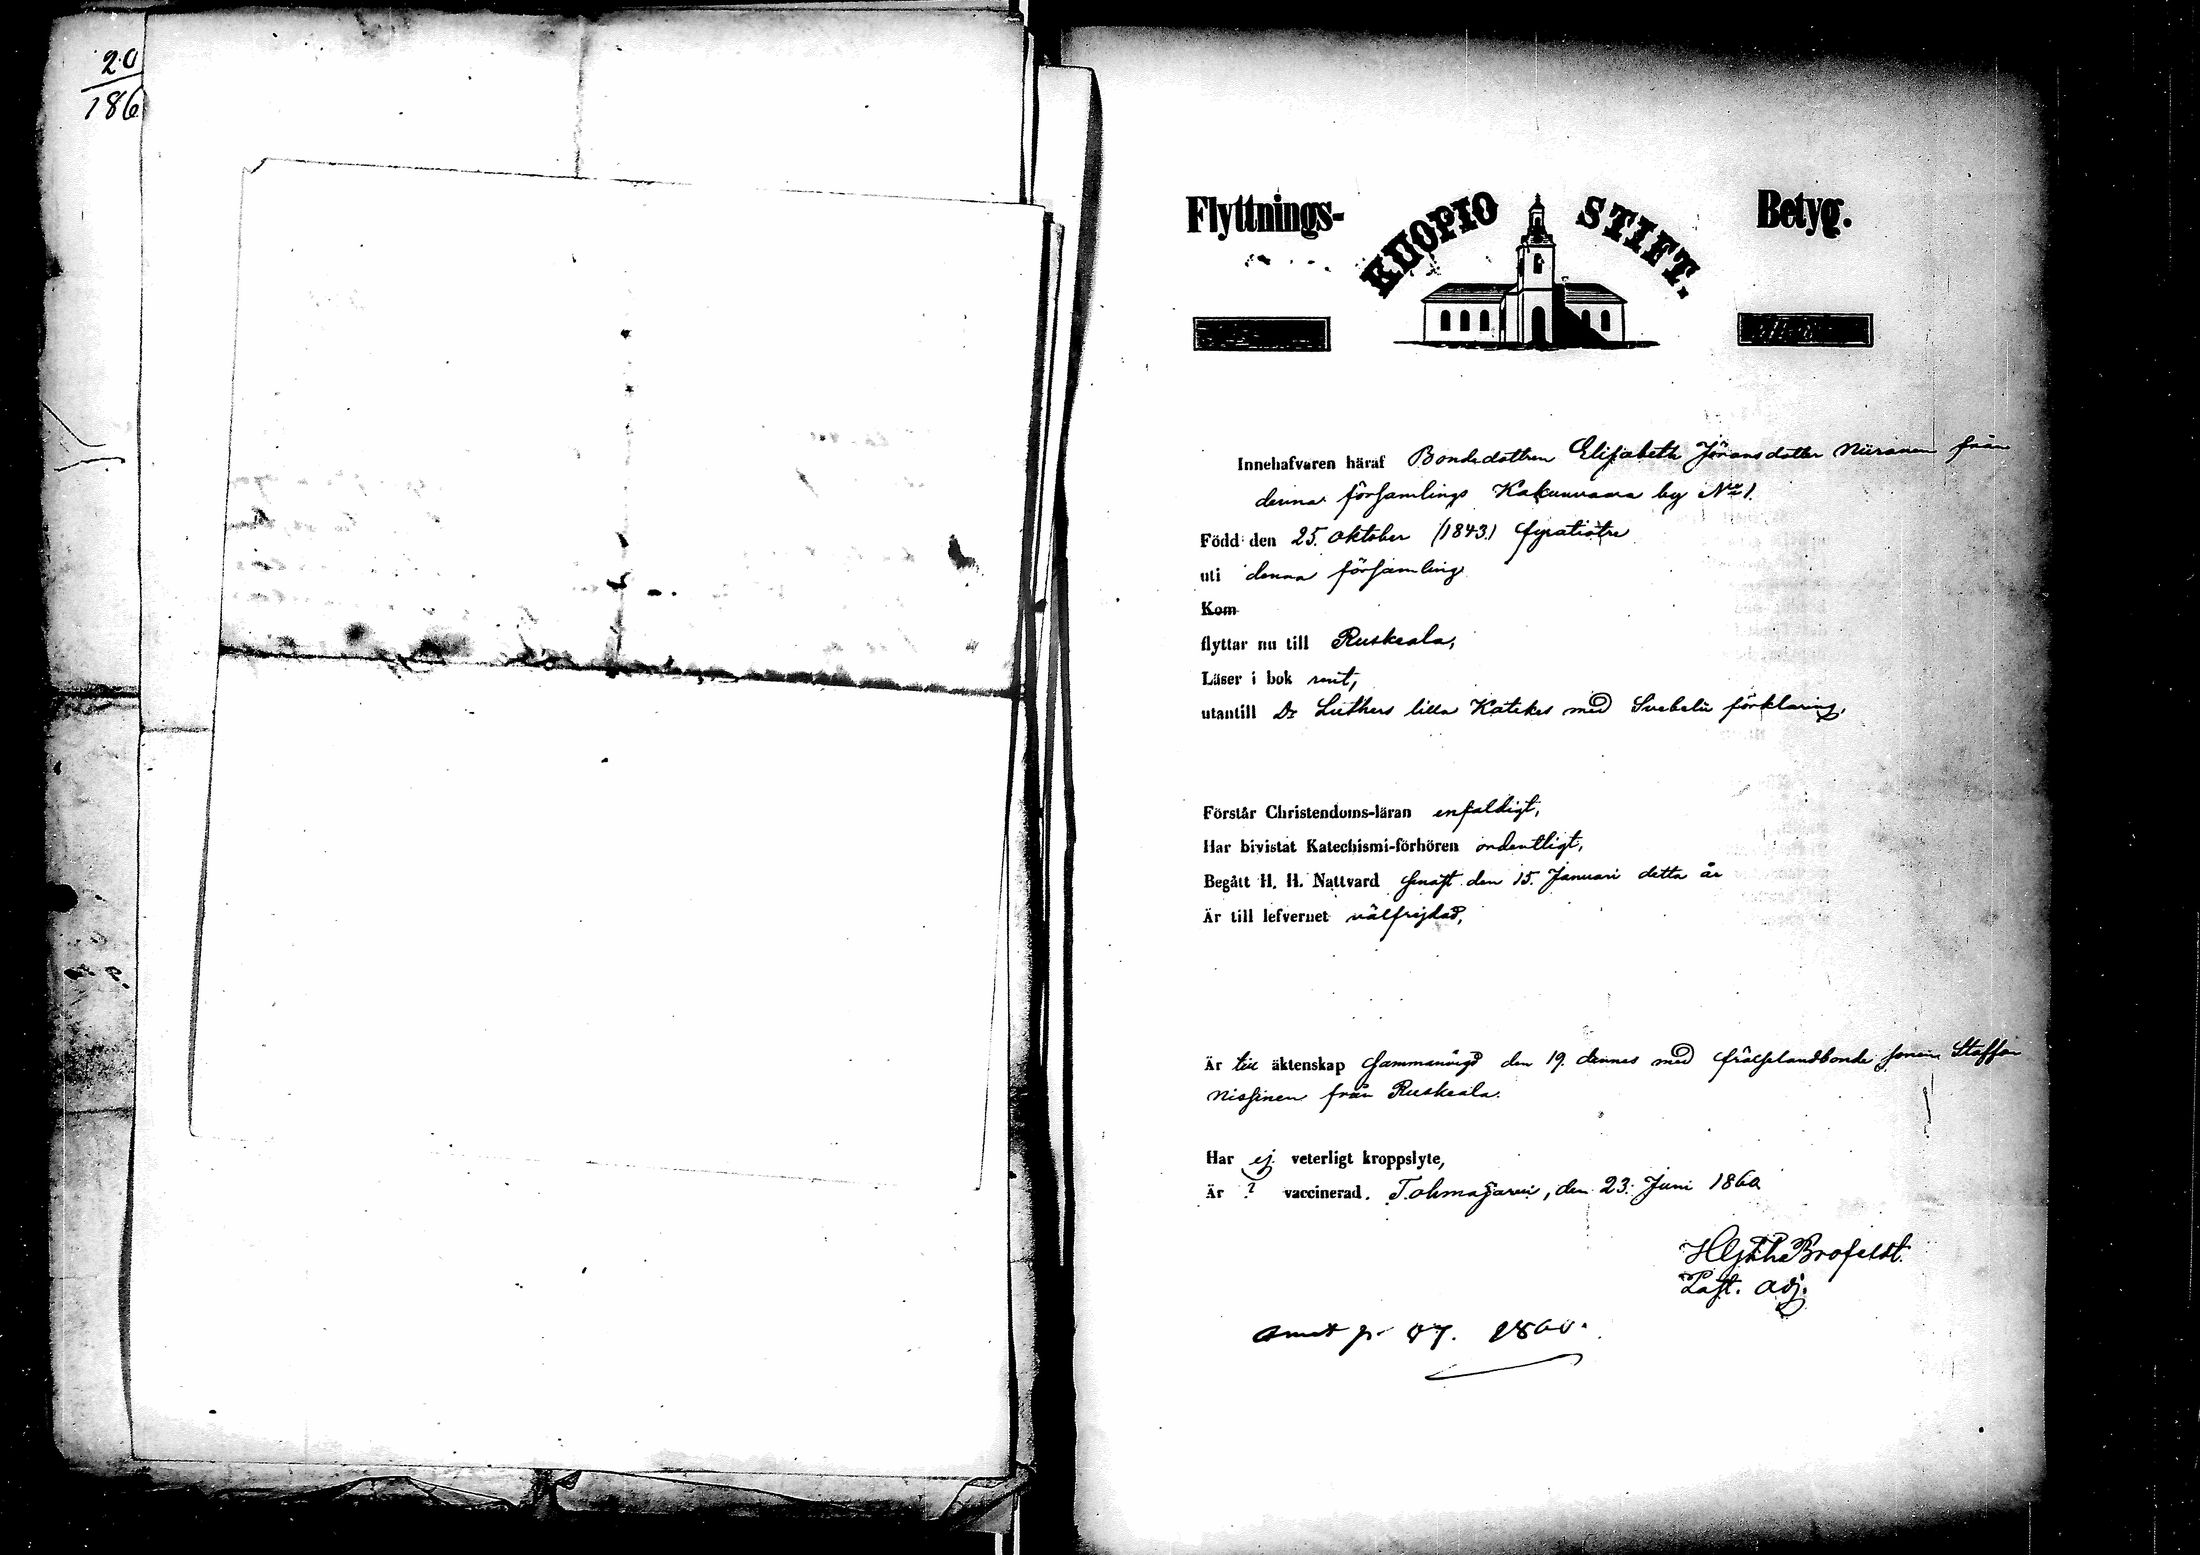 20
186
Flyttnings- KUOPIO STIFT. Betyg.
Innehafvaren häraf Bondedottren Elisabeth Jöransdotter Niiranen från
denna församlings Kakunvaara by No 1.
Född den 25. Oktober (1843.) fyratiotre
uti denna församling
Kom
flyttar nu till Ruskeala,
Läser i bok rent,
utantill Dr Luthers lilla Katekes med Svebelii förklaring,
Förstår Christendoms-läran enfaldigt,
Har bivistat Katechismi-förhören ordentligt,
Begått H. H. Nattvard senast den 15. Januari detta år
Är till lefvernet välfrejdad,
Är till äktenskap sammanvigd den 19. dennes med frälselandbonde sonen Staffan
Nissinen från Ruskeala.
Har ej veterligt kroppslyte,
Är ? vaccinerad. Tohmajärvi, den 23. Juni 1860
Brofeldt.
Past. adj.
p. 87. 1860.